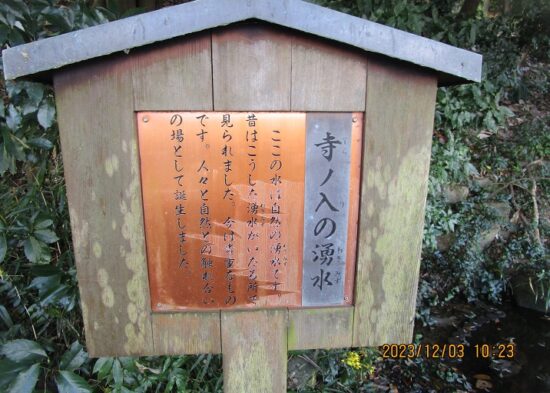 寺ノ入の湧水
ここの水は自然の湧水です
昔はこうした湧水がいたる所で
見られました。今は貴重なもの
です。人々と自然との触れ合い
の場として誕生しました。
2023/12/03 10:23